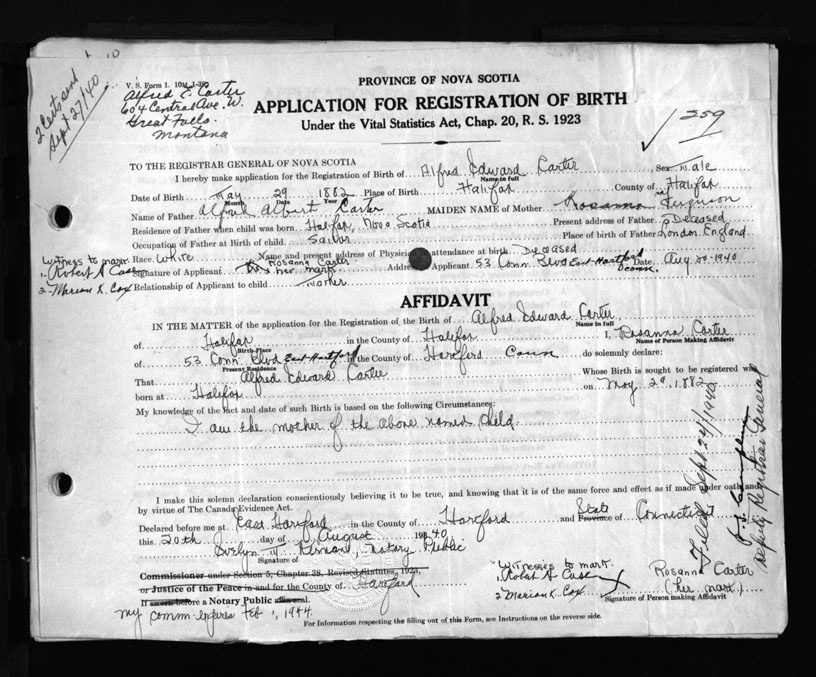 2 Certs sent
Sept 27/40
V. S. Form 1. 10M
Alfred E. Carter
604 Central Ave. W.
Great Falls.
Montana
PROVINCE OF NOVA SCOTIA
APPLICATION FOR REGISTRATION OF BIRTH
Under the Vital Statistics Act, Chap. 20, R. S. 1923
259
TO THE REGISTRAR GENERAL OF NOVA SCOTIA
I hereby make application for the Registration of Birth of Alfred Edward Carter Sex Male
Name in full
Date of Birth May 29 1882 Place of Birth Halifax County of Halifax
Month Date Year
Name of Father Alfred Albert Carter MAIDEN NAME of Mother Rosanna Ferguson
Residence of Father when child was born Halifax, Nova Scotia Present address of Father Deceased
Occupation of Father at Birth of child Sailor Place of Birth of Father London, England
Race White Name and present address of Physician in attendance at birth Deceased
Witness to mark.
1. Robert A Case
2 Marian K. Cox
Signature of Applicant Rosanna Carter her mark Address of Applicant 53 Conn. Blvd East Hartford Conn. Date Aug 20-1940
Relationship of Applicant to child Mother
AFFIDAVIT
IN THE MATTER of the application for the Registration of the Birth of Alfred Edward Carter
Name in full
of Halifax in the County of Halifax I, Rosanna Carter
Birth Place Name of Person Making Affidavit
of 53 Conn. Blvd East Hartford in the County of Hartford Conn do solemnly declare:
Present Residence
That Alfred Edward Carter Whose Birth is sought to be registered was
born at Halifax on May 29 1882
My knowledge of the fact and date of such Birth is based on the following Circumstances:
I am the mother of the above named child
I make this solemn declaration conscientiously believing it to be true, and knowing that it is of the same force and effect as if made under oath and
by virtue of The Canada Evidence Act.
Declared before me at East Hartford in the County of Hartford and Province of State Connecticut
this 20th day of August 1940
Evelyn Notary Public
Signature of
Commissioner under Section 5, Chapter 38, Revised Statutes, 1923,
or Justice of the Peace in and for the County of Hartford
If sworn before a Notary Public affix seal.
My comm. expires Feb 1, 1944.
Witnesses to mark.
1. Robert A Case
2 Marian K. Cox
Rosanna Carter
(her mark)
Signature of Person making Affidavit
For Information respecting the filling out of this Form, see Instructions on the reverse side.
Filed Sept 24/1940
Deputy Registrar General